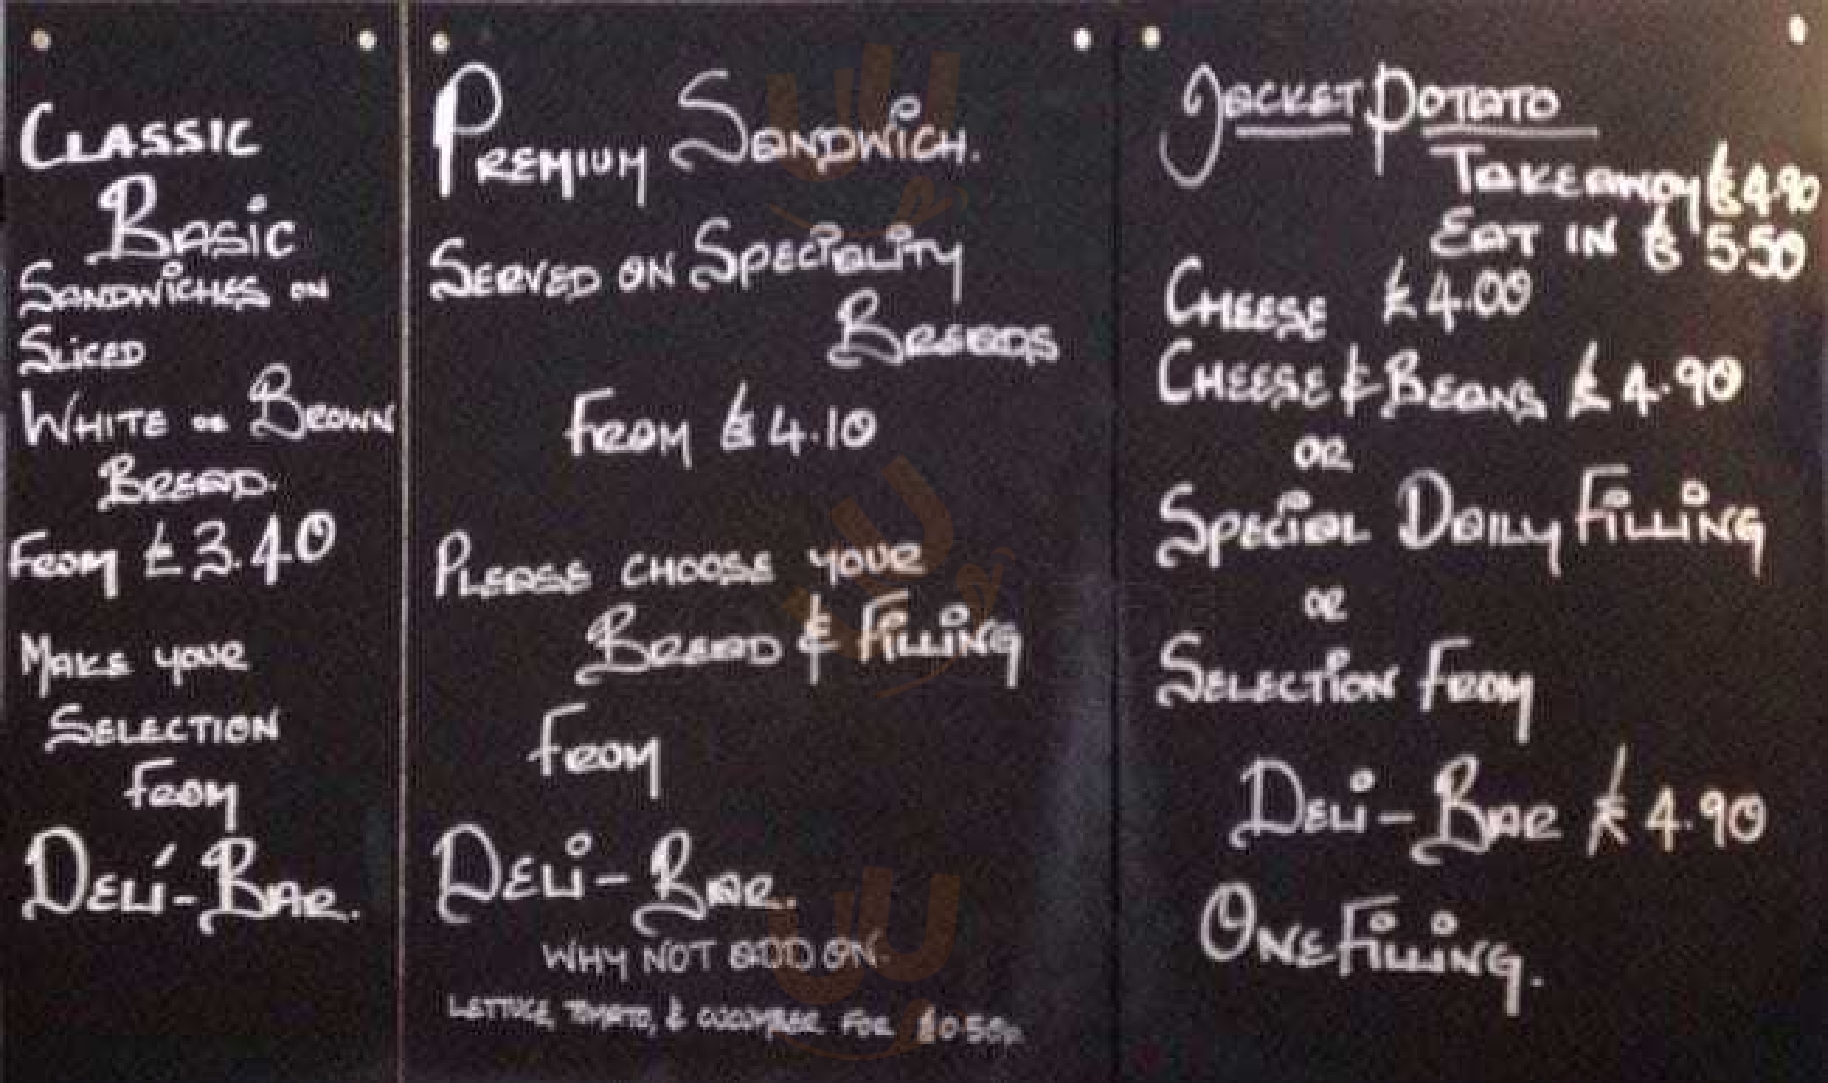 CLASSIC
BASIC
SANDWICHES ON
SLICED
WHITE OR BROWN
BREAD.
FROM £3.40
MAKE YOUR
SELECTION
FROM
DELI-BAR.
PREMIUM SANDWICH.
SERVED ON SPECIALITY
BREADS
FROM £4.10
PLEASE CHOOSE YOUR
BREAD & FILLING
FROM
DELI-BAR.
WHY NOT ADD ON.
LETTUCE, TOMATO, & CUCUMBER FOR £0.50p
JACKET POTATO
TAKEAWAY £4.90
EAT IN £5.50
CHEESE £4.00
CHEESE & BEANS £4.90
OR
SPECIAL DAILY FILLING
OR
SELECTION FROM
DELI-BAR £4.90
ONE FILLING.